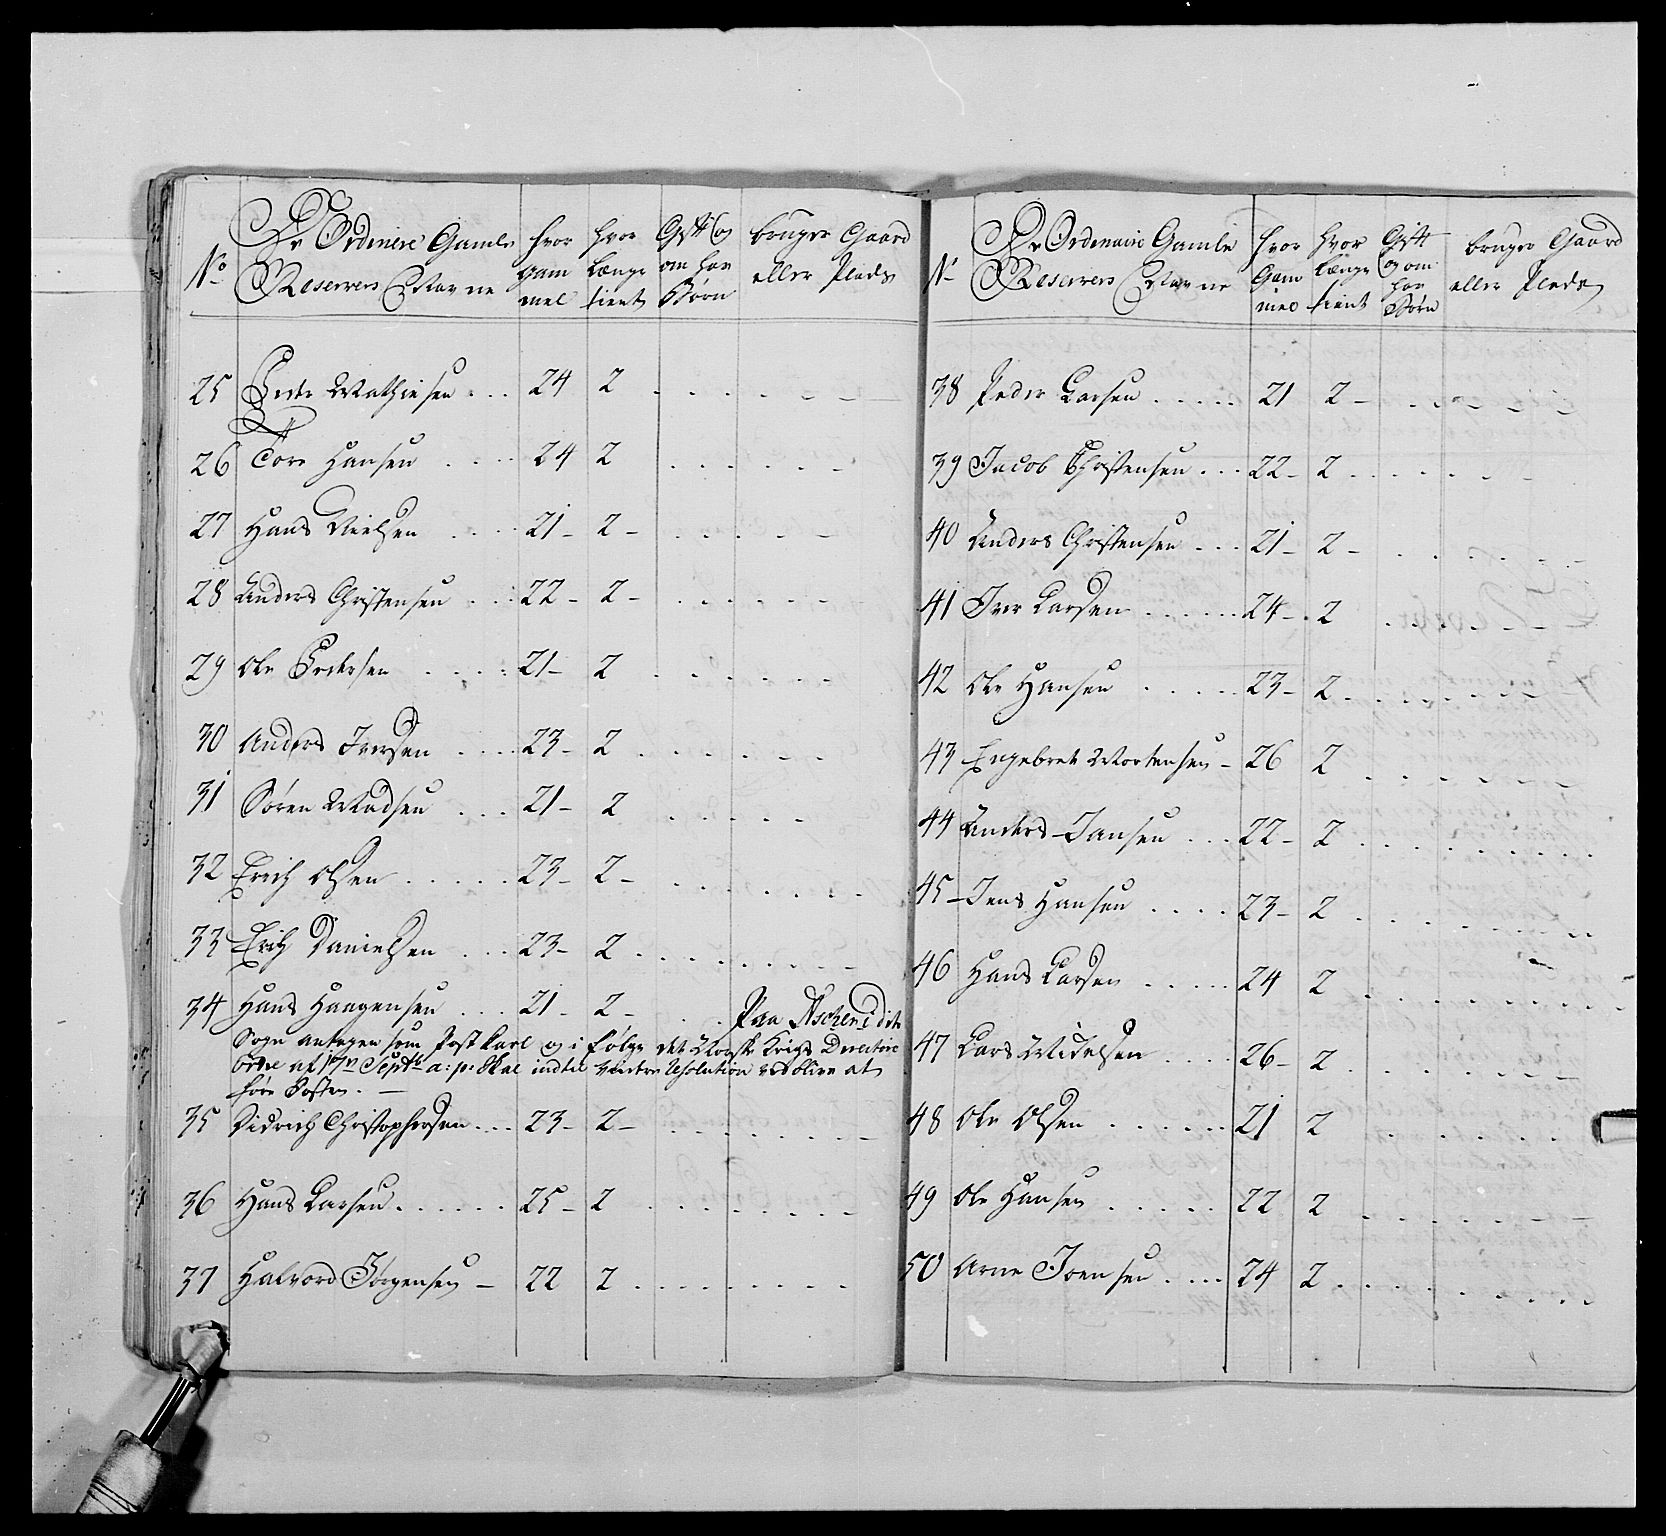 No
De Ordinere Gamle
Reservers Navne
hvor
gam
mel
hvor
længe
tient
Gift og
om har
Børn
bruger Gaard
eller Plads
25 Peder Mathiesen . . . 24 2
26 Tore Hansen . . . . 24 2
27 Hans Nielsen . . . . 21 - 2 -
28 Anders Christensen . . . 22 - 2 -
29 Ole Pedersen . . . . 21 - 2
30 Anders Iversen . . . . 23 - 2
31 Søren Madsen . . . 21 - 2
32 Erich Olsen . . . . . 23 - 2 -
33 Erich Danielsen . . . 23 - 2
34 Hans Haagensen . . . 21 - 2 - Paa Ascher i dito
Sogn antagen som Postkarl og i følge det Norske Krigs Directoire
Ordre af 17n Septbr a: p: skal indtil videre Resolution forblive at
føre Posten. —
35 Didrich Christophersen . . . 23 - 2 -
36 Hans Larsen . . . . . . 25 - 2
37 Halvord Jørgensen - 22 2
No
De Ordinaire Gamle
Reservers Navne
hvor
Gam
mel
hvor
længe
tient
Gift
og om
har
Børn
bruger Gaard
eller Plads
38 Peder Larsen . . . . . 21 2 -
39 Jacob Christensen . . . 22 - 2
40 Anders Christensen . . . 21 - 2 -
41 Iver Larsen . . . . . . 24 - 2
42 Ole Hansen . . . . . 23 - 2
43 Engebret Mortensen - 26 2
44 Anders Jansen . . . 22 - 2
45 - Jens Hansen . . . . 23 - 2
46 Hans Larsen . . . . . 24 2
47 Lars Nidelsen . . . . 26 - 2
48 Ole Olsen . . . . . . 21 2
49 Ole Hansen . . . . . 22 2
50 Arne Joensen . . . . 24 2